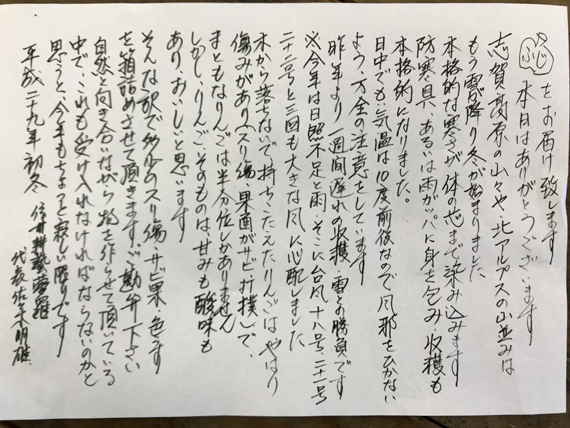 ふじ をお届け致します
本日はありがとうございます
志賀高原の山々や、北アルプスの山並みは
もう雪が降り冬が始まりました
本格的な寒さが体の芯まで染み込みます
防寒具、あるいは雨ガッパに身を包み、収穫も
本格的になりました。
日中でも、気温は10度前後なので、風邪をひかない
よう、万全の注意をしています
昨年より一週間遅れの収穫、雪との勝負です
※今年は日照不足と雨、そこに台風十八号、二十一号
二十二号と三回も大きな風に心配しました
木から落ちないで持ちこたえたりんごは、やはり
傷みがあり(スリ傷、果面がサビ、打撲)で、
まともなりんごは半分位しかありません
しかし、りんごそのものは、甘みも酸味も
あり、おいしいと思います
そんな訳で多少のスリ傷、サビ果、色ムラ
を箱詰めさせて頂きます。ご勘弁下さい
自然と向き合いながら物を作らせて頂いている
中で、これも受け入れなければならないのかと
思うと、今年もちょっと寂しい限りです
平成二十九年 初冬
代表